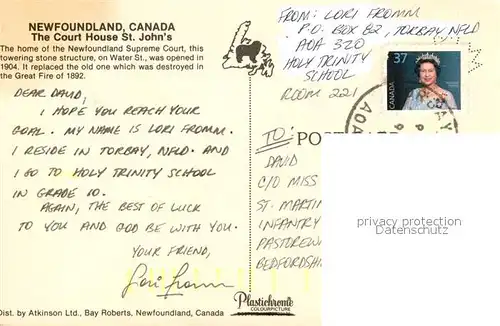 NEWFOUNDLAND, CANADA
The Court House St. John's
The home of the Newfoundland Supreme Court, this
towering stone structure, on Water St., was opened in
1904. It replaced the old one which was destroyed in
the Great Fire of 1892.
DEAR DAVID,
I HOPE YOU REACH YOUR
GOAL. MY NAME IS LORI FROMM.
I RESIDE IN TORBAY, NFLD. AND
I GO TO HOLY TRINITY SCHOOL
IN GRADE 10.
AGAIN, THE BEST OF LUCK
TO YOU AND GOD BE WITH YOU.
YOUR FRIEND,
Lori Fromm
Dist. by Atkinson Ltd., Bay Roberts, Newfoundland, Canada
Plastichrome
COLOURPICTURE
FROM: LORI FROMM
P.O. BOX 82, TORBAY, NFLD
A0A 3Z0
HOLY TRINITY
SCHOOL
ROOM 221
37
CANADA
TO:
POST
DAVID
C/O MISS
ST. MARTIN
INFANTRY
PASTOREW
BEDFORDSHI
privacy protection
Datenschutz